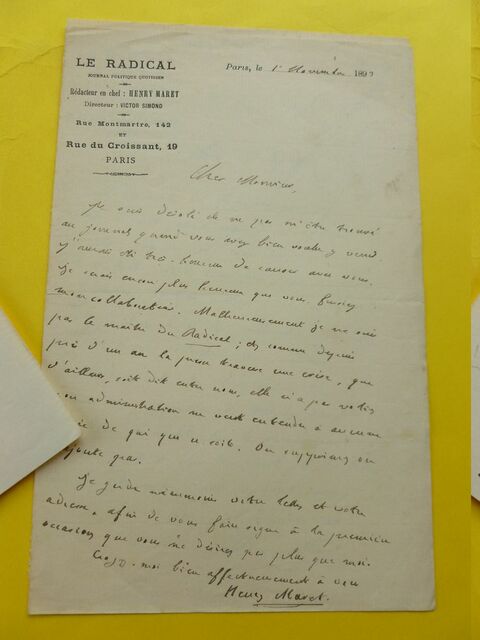 LE RADICAL
JOURNAL POLITIQUE QUOTIDIEN
Rédacteur en chef : HENRY MARET
Directeur : VICTOR SIMOND
Rue Montmartre, 142
ET
Rue du Croissant, 19
PARIS
Paris, le 1er Novembre 189
Cher Monsieur,
Je suis désolé de ne pas m'être trouvé
au journal quand vous avez bien voulu y venir.
J'aurais été très-heureux de causer avec vous.
Je serais encore plus heureux que vous fussiez
mon collaborateur. Malheureusement je ne suis
pas le maître du Radical ; et comme depuis
près d'un an la presse traverse une crise, que
d'ailleurs, soit dit entre nous, elle n'a pas volée,
administration ne veut entendre à aucune
de qui que ce soit. On supprime, on
ajoute pas.
Je garde néanmoins votre lettre et votre
adresse, afin de vous faire signe à la première
occasion, que vous ne désirez pas plus que moi.
Croyez-moi bien affectueusement à vous
Henry Maret.